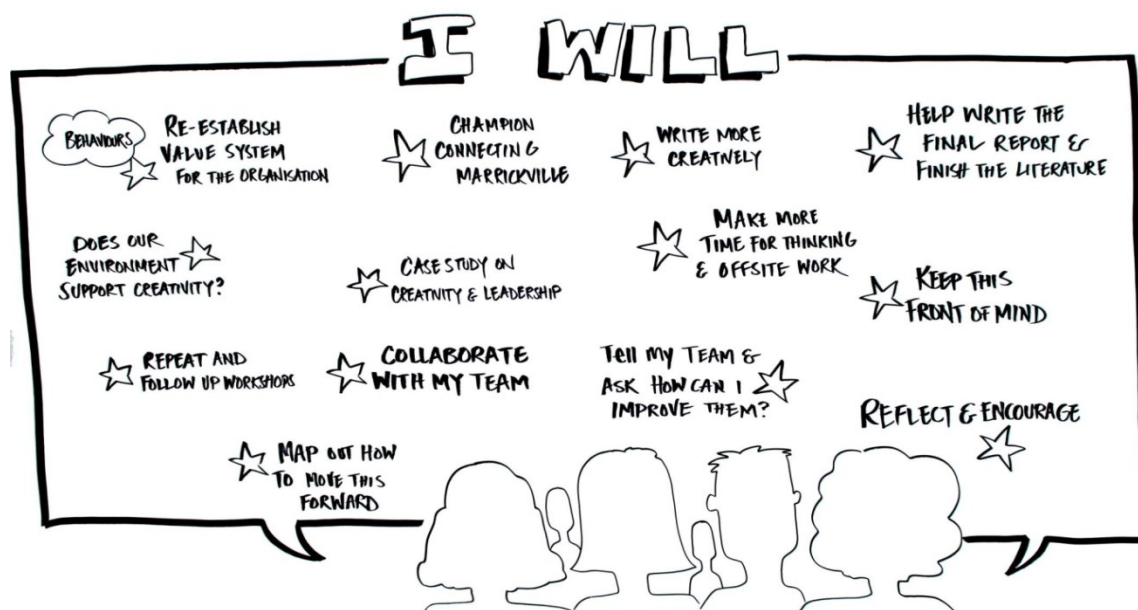 I WILL
BEHAVIOURS
RE-ESTABLISH
VALUE SYSTEM
FOR THE ORGANISATION
CHAMPION
CONNECTING
MARRICKVILLE
WRITE MORE
CREATIVELY
HELP WRITE THE
FINAL REPORT &
FINISH THE LITERATURE
DOES OUR
ENVIRONMENT
SUPPORT CREATIVITY?
CASE STUDY ON
CREATIVITY & LEADERSHIP
MAKE MORE
TIME FOR THINKING
& OFFSITE WORK
KEEP THIS
FRONT OF MIND
REPEAT AND
FOLLOW UP WORKSHOPS
COLLABORATE
WITH MY TEAM
Tell MY TEAM &
ASK HOW CAN I
IMPROVE THEM?
REFLECT & ENCOURAGE
MAP OUT HOW
TO MOVE THIS
FORWARD